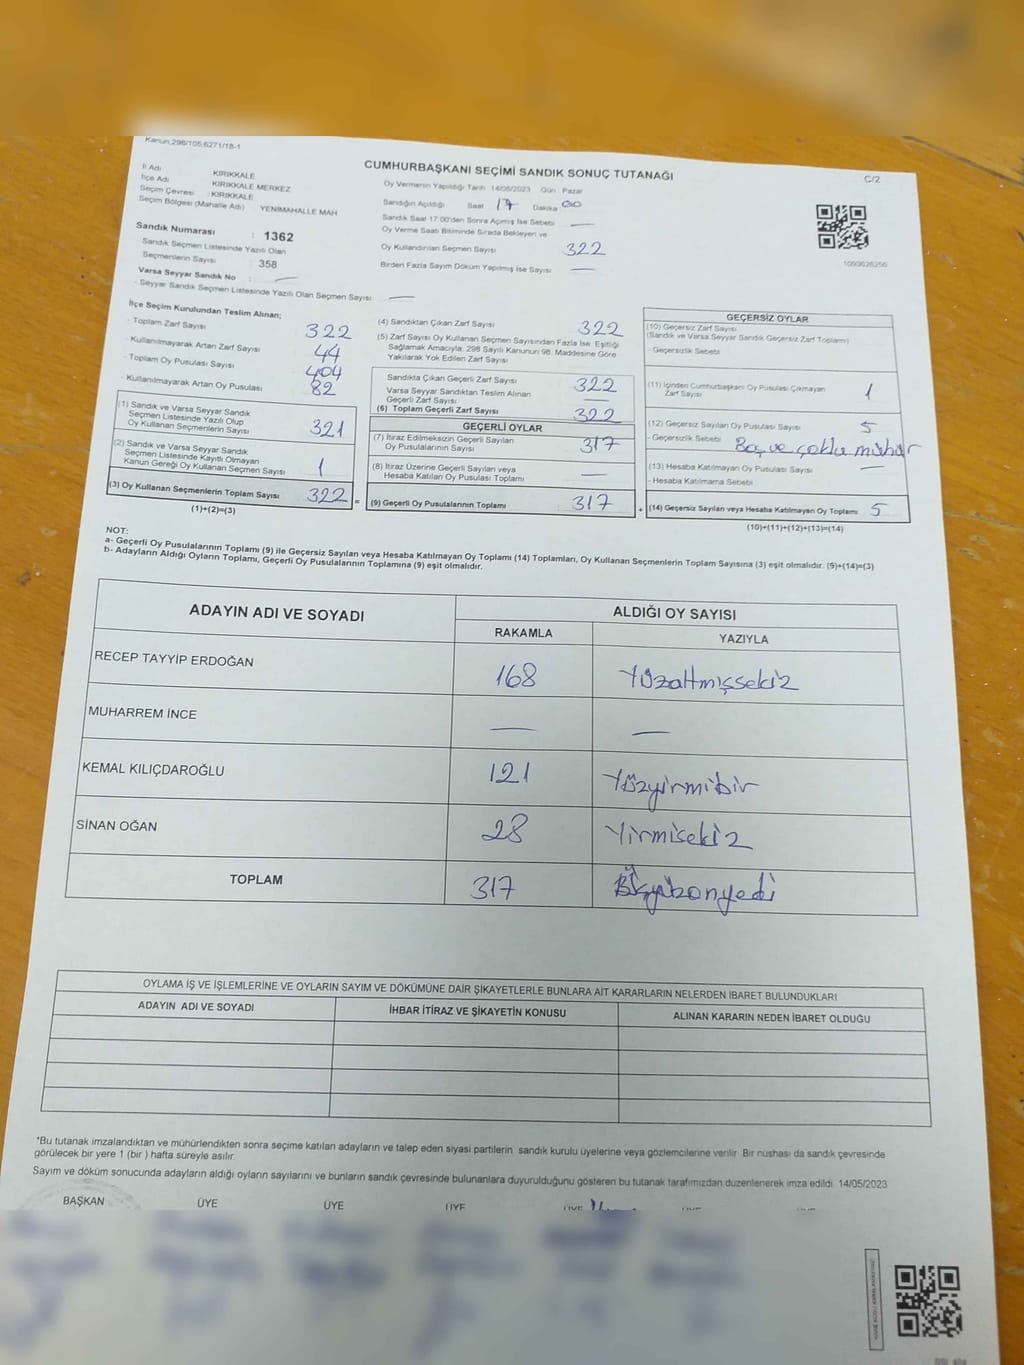 Kanun;298/105;6271/18-1
CUMHURBAŞKANI SEÇİMİ SANDIK SONUÇ TUTANAĞI
C/2
İl Adı KIRIKKALE
İlçe Adı KIRIKKALE MERKEZ
Seçim Çevresi : KIRIKKALE
Seçim Bölgesi (Mahalle Adı) YENİMAHALLE MAH
Sandık Numarası : 1362
Sandık Seçmen Listesinde Yazılı Olan
Seçmenlerin Sayısı : 358
Varsa Seyyar Sandık No —
- Seyyar Sandık Seçmen Listesinde Yazılı Olan Seçmen Sayısı: —
Oy Vermenin Yapıldığı Tarih 14/05/2023 Gün : Pazar
Sandığın Açıldığı Saat 17 Dakika 00
Sandık Saat 17:00'den Sonra Açımış İse Sebebi —
Oy Verme Saati Bitiminde Sırada Bekleyen ve
Oy Kullandırılan Seçmen Sayısı 322
Birden Fazla Sayım Döküm Yapılmış İse Sayısı —
İlçe Seçim Kurulundan Teslim Alınan;
- Toplam Zarf Sayısı 322
- Kullanılmayarak Artan Zarf Sayısı 44
- Toplam Oy Pusulası Sayısı 404
- Kullanılmayarak Artan Oy Pusulası 82
(1) Sandık ve Varsa Seyyar Sandık
Seçmen Listesinde Yazılı Olup
Oy Kullanan Seçmenlerin Sayısı 321
(2) Sandık ve Varsa Seyyar Sandık
Seçmen Listesinde Kayıtlı Olmayan
Kanun Gereği Oy Kullanan Seçmen Sayısı 1
(3) Oy Kullanan Seçmenlerin Toplam Sayısı 322 =
(1)+(2)=(3)
(4) Sandıktan Çıkan Zarf Sayısı 322
(5) Zarf Sayısı Oy Kullanan Seçmen Sayısından Fazla İse, Eşitliği
Sağlamak Amacıyla; 298 Sayılı Kanunun 98. Maddesine Göre
Yakılarak Yok Edilen Zarf Sayısı
Sandıkta Çıkan Geçerli Zarf Sayısı 322
Varsa Seyyar Sandıktan Teslim Alınan
Geçerli Zarf Sayısı —
(6) Toplam Geçerli Zarf Sayısı 322
GEÇERLİ OYLAR
(7) İtiraz Edilmeksizin Geçerli Sayılan
Oy Pusulası Sayısı 317
(8) İtiraz Üzerine Geçerli Sayılan veya
Hesaba Katılan Oy Pusulası Toplamı —
(9) Geçerli Oy Pusulalarının Toplamı 317 +
GEÇERSİZ OYLAR
(10) Geçersiz Zarf Sayısı
(Sandık ve Varsa Seyyar Sandık Geçersiz Zarf Toplamı)
- Geçersizlik Sebebi
(11) İçinden Cumhurbaşkanı Oy Pusulası Çıkmayan
Zarf Sayısı 1
(12) Geçersiz Sayılan Oy Pusulası Sayısı 5
- Geçersizlik Sebebi Boş ve çoklu mühür
(13) Hesaba Katılmayan Oy Pusulası Sayısı —
- Hesaba Katılmama Sebebi
(14) Geçersiz Sayılan veya Hesaba Katılmayan Oy Toplamı 5
(10)+(11)+(12)+(13)=(14)
NOT:
a- Geçerli Oy Pusulalarının Toplamı (9) ile Geçersiz Sayılan veya Hesaba Katılmayan Oy Toplamı (14) Toplamları, Oy Kullanan Seçmenlerin Toplam Sayısına (3) eşit olmalıdır. (9)+(14)=(3)
b- Adayların Aldığı Oyların Toplamı, Geçerli Oy Pusulalarının Toplamına (9) eşit olmalıdır.
ADAYIN ADI VE SOYADI ALDIĞI OY SAYISI
RAKAMLA YAZIYLA
RECEP TAYYİP ERDOĞAN 168 Yüzaltmışsekiz
MUHARREM İNCE — —
KEMAL KILIÇDAROĞLU 121 Yüzyirmibir
SİNAN OĞAN 28 Yirmisekiz
TOPLAM 317
OYLAMA İŞ VE İŞLEMLERİNE VE OYLARIN SAYIM VE DÖKÜMÜNE DAİR ŞİKAYETLERLE BUNLARA AİT KARARLARIN NELERDEN İBARET BULUNDUKLARI
ADAYIN ADI VE SOYADI İHBAR İTİRAZ VE ŞİKAYETİN KONUSU ALINAN KARARIN NEDEN İBARET OLDUĞU
*Bu tutanak imzalandıktan ve mühürlendikten sonra seçime katılan adayların ve talep eden siyasi partilerin sandık kurulu üyelerine veya gözlemcilerine verilir. Bir nüshası da sandık çevresinde
görülecek bir yere 1 (bir ) hafta süreyle asılır.
Sayım ve döküm sonucunda adayların aldığı oyların sayılarını ve bunların sandık çevresinde bulunanlara duyurulduğunu gösteren bu tutanak tarafımızdan düzenlenerek imza edildi. 14/05/2023
BAŞKAN ÜYE ÜYE ÜYE ÜYE